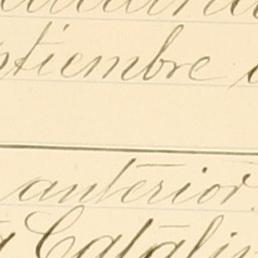 ptiembre
anterior.
Catalin